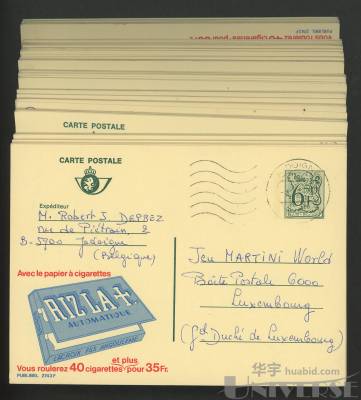 PUBLIBEL 2763 F
CARTE POSTALE
CARTE POSTALE
Expéditeur
M. Robert J. DEPREZ
rue de Piétrain, 2
B-5900 Jodoigne
(Belgique)
6F
Jeu MARTINI World
Boîte Postale 6000
Luxembourg
(Gd Duché de Luxembourg)
Avec le papier à cigarettes
RIZLA+
AUTOMATIQUE
LACROIX PAS ANGOULEME
et plus
Vous roulerez 40 cigarettes pour 35 Fr.
PUBLIBEL 2743 F
华宇 huabid.com
UNIVERSE